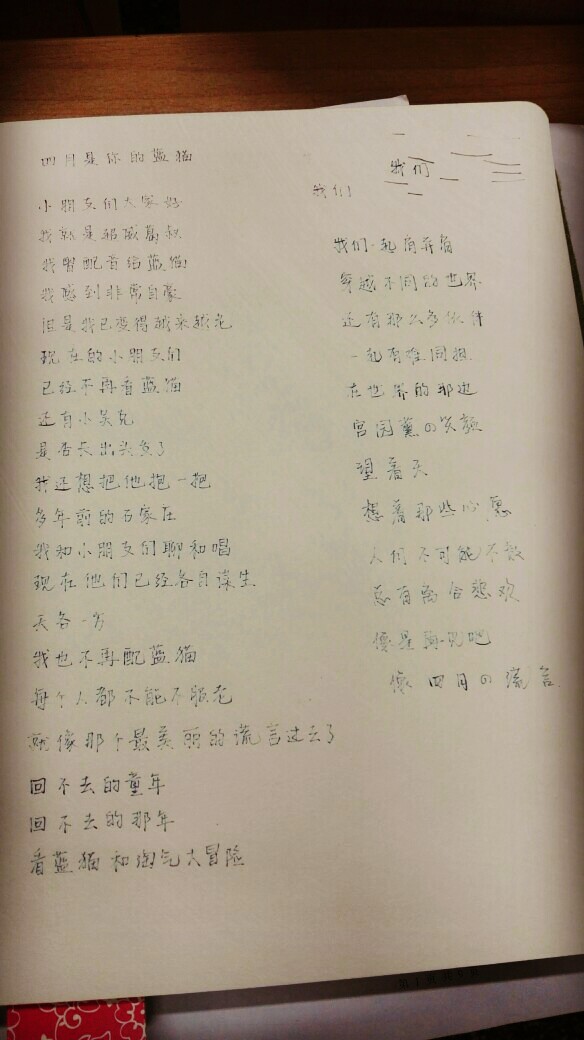 四月是你的蓝猫
小朋友们大家好
我就是葛叔
我曾配音给蓝猫
我感到非常自豪
但是我已变得越来越老
现在的小朋友们
已经不再看蓝猫
还有小吴克
是否长出头发了
我还想把他抱一抱
多年前的石家庄
我和小朋友们聊和唱
现在他们已经各自谋生
天各一方
我也不再配蓝猫
每个人都不能不服老
就像那个最美丽的谎言过去了
回不去的童年
回不去的那年
看蓝猫和淘气大冒险
我们
我们
我们一起肩并肩
穿越不同的世界
还有那么多伙伴
一起有难同担
在世界的那边
宫园薰の笑颜
望着天
想着那些心愿
人们不可能不散
总有离合悲欢
像是再见吧
像四月の谎言